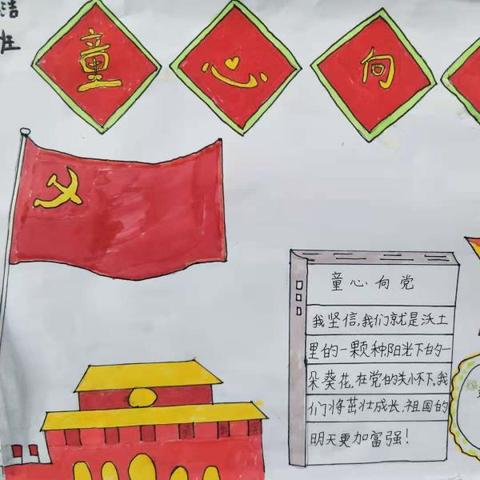 洁
童心向
童心向党
我坚信,我们就是沃土
里的一颗种阳光下的一
朵葵花,在党的关怀下,我
们将茁壮成长,祖国的
明天更加富强!